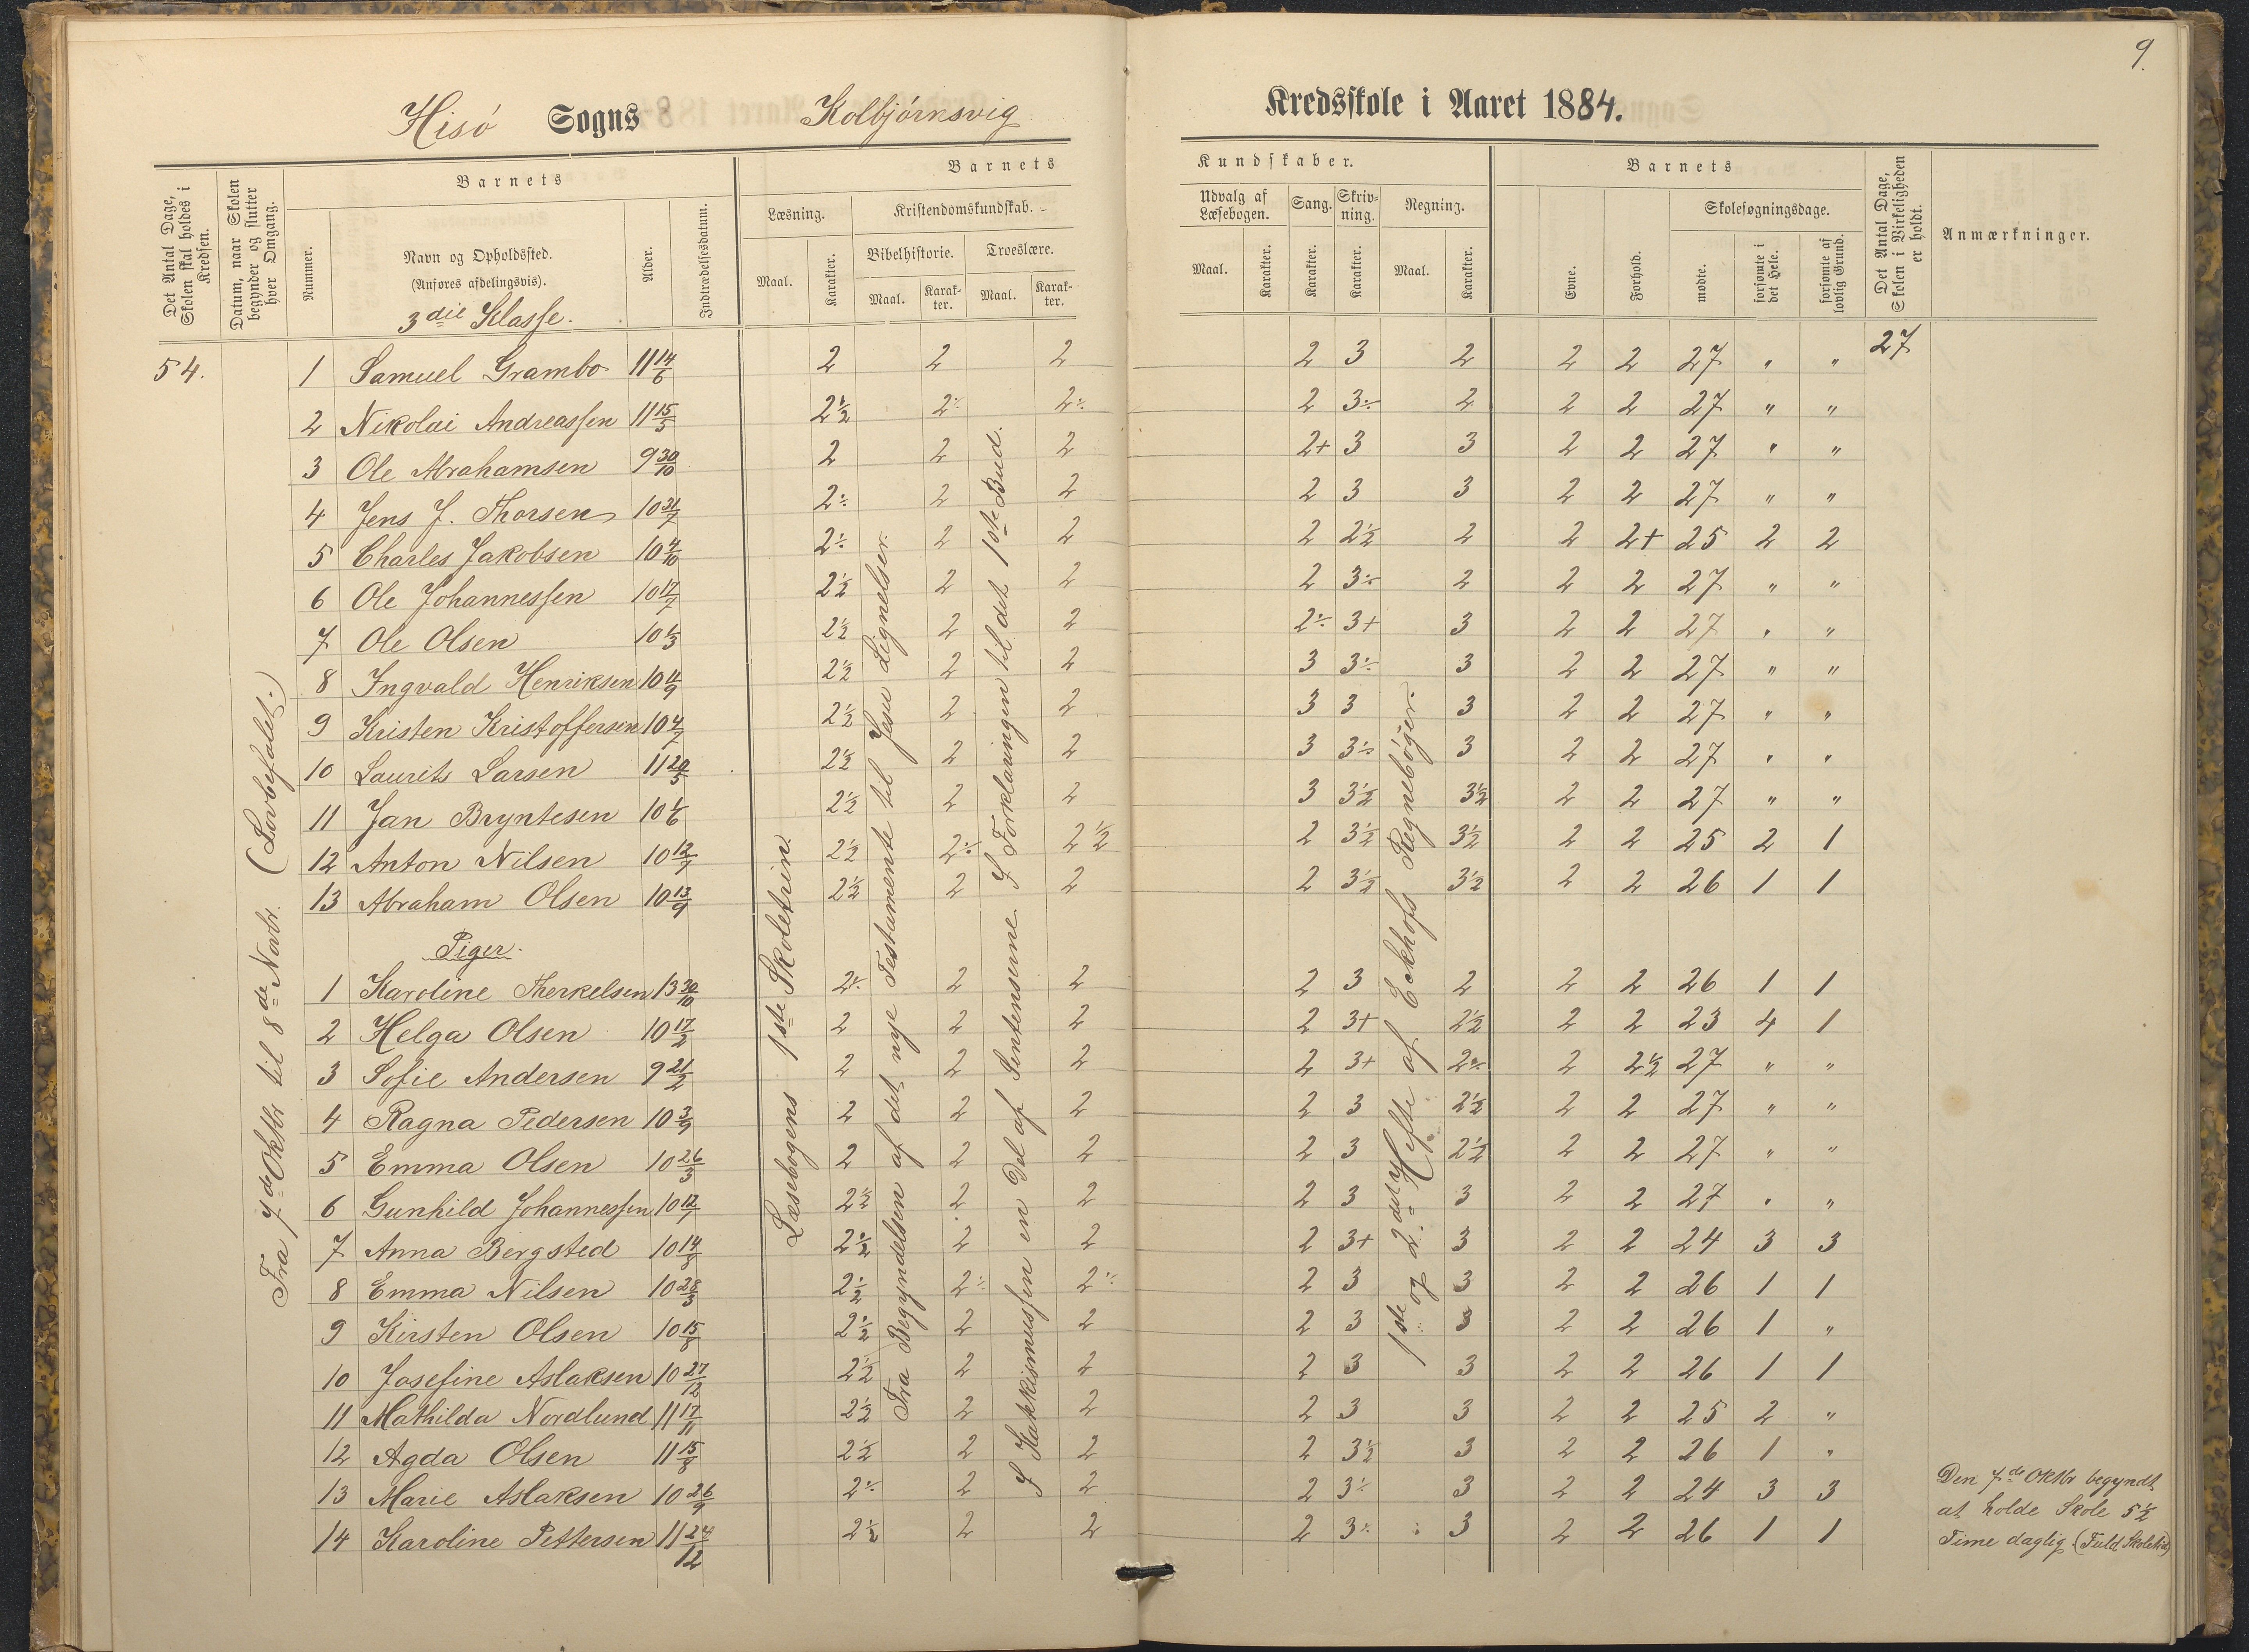 9.
Hisø Sogns Kolbjørnsvig Kredsskole i Aaret 1884.
Det Antal Dage, Skolen skal holdes i Kredsen.
Datum, naar Skolen begynder og slutter hver Omgang.
Barnets
Nummer.
Navn og Opholdssted.
(Anføres afdelingsvis).
3die Klasse.
Alder.
Indtrædelsesdatum.
Barnets Kundskaber.
Læsning. Kristendomskundskab. Udvalg af Læsebogen. Sang. Skrivning. Regning.
Bibelhistorie. Troeslære.
Maal. Karakter. Maal. Karakter. Maal. Karakter. Maal. Karakter. Karakter. Karakter. Maal. Karakter.
Barnets
Evne. Forhold.
Skolesøgningsdage.
mødte. forsømte i det Hele. forsømte af lovlig Grund.
Det Antal Dage, Skolen i Virkeligheden er holdt.
Anmærkninger.
54.
Fra 7de Oktbr til 8de Novbr. (Lovbefalet.)
Læsebogens 1ste Skoletrin.
Fra Begyndelsen af det nye Testamente til Jesu Lignelser.
I Katekismussen en Del af Sentenserne. I Forklaringen til det 1ste Bud.
1ste og 2det Hefte af Eckhofs Regnebøger.
27
1 Samuel Grambo 11 14/6 2 2 2 2 3 2 2 2 27 " "
2 Nikolai Andreassen 11 15/5 2½ 2÷ 2÷ 2 3÷ 2 2 2 27 " "
3 Ole Abrahamsen 9 30/10 2 2 2 2+ 3 3 2 2 27 " "
4 Jens J. Thorsen 10 31/7 2÷ 2 2 2 3 3 2 2 27 " "
5 Charles Jakobsen 10 4/10 2÷ 2 2 2 2½ 2 2 2+ 25 2 2
6 Ole Johannessen 10 17/7 2½ 2 2 2 3÷ 2 2 2 27 " "
7 Ole Olsen 10 1/3 2½ 2 2 2÷ 3+ 3 2 2 27 " "
8 Ingvald Henriksen 10 11/9 2½ 2 2 3 3÷ 3 2 2 27 " "
9 Kristen Kristoffersen 10 4/7 2½ 2 2 3 3 3 2 2 27 " "
10 Laurits Larsen 11 20/5 2½ 2 2 3 3÷ 3 2 2 27 " "
11 Jan Bryntesen 10 1/6 2½ 2 2 3 3½ 3½ 2 2 27 " "
12 Anton Nilsen 10 12/7 2½ 2÷ 2½ 2 3½ 3½ 2 2 25 2 1
13 Abraham Olsen 10 13/9 2½ 2 2 2 3½ 3½ 2 2 26 1 1
Piger.
1 Karoline Therkelsen 13 30/10 2÷ 2 2 2 3 2 2 2 26 1 1
2 Helga Olsen 10 17/2 2 2 2 2 3+ 2½ 2 2 23 4 1
3 Sofie Andersen 9 21/2 2 2 2 2 3+ 2÷ 2 2½ 27 " "
4 Ragna Pedersen 10 3/9 2 2 2 2 3 2½ 2 2 27 " "
5 Emma Olsen 10 26/3 2 2 2 2 3 2½ 2 2 27 " "
6 Gunhild Johannessen 10 12/7 2½ 2 2 2 3 3 2 2 27 " "
7 Anna Bergsted 10 14/8 2½ 2 2 2 3+ 3 2 2 24 3 3
8 Emma Nilsen 10 28/3 2½ 2÷ 2÷ 2 3 3 2 2 26 1 1
9 Kirsten Olsen 10 15/8 2½ 2 2 2 3 3 2 2 26 1 "
10 Josefine Aslaksen 10 27/12 2½ 2 2 2 3 3 2 2 26 1 1
11 Mathilda Nordlund 11 17/11 2½ 2 2 2 3 3 2 2 25 2 "
12 Agda Olsen 11 15/8 2½ 2 2 2 3½ 3 2 2 26 1 "
13 Marie Aslaksen 10 26/9 2÷ 2 2 2 3÷ 3 2 2 24 3 3
14 Karoline Pettersen 11 24/12 2½ 2 2 2 3÷ 3 2 2 26 1 1
Den 7de Oktbr begyndt
at holde Skole 5½
Time daglig. (Fuld Skoletid)